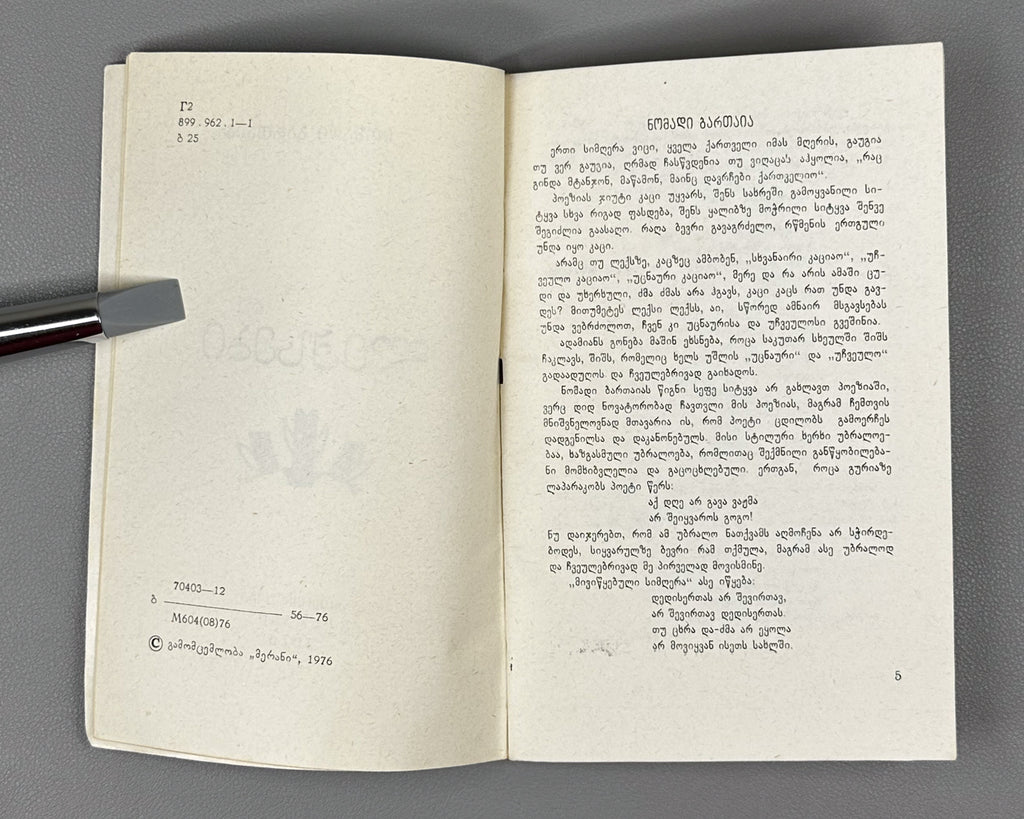 Г2
899.962.1—1
ბ 25
70403—12
ბ ———— 56—76
М604(08)76
© გამომცემლობა „მერანი“, 1976
ნომადი ბართაია
ერთი სიმღერა ვიცი, ყველა ქართველი იმას მღერის, გაუგია
თუ ვერ გაუგია, ღრმად ჩასწვდენია თუ ვიღაცას აჰყოლია, „რაც
გინდა მტანჯონ, მაწამონ, მაინც დავრჩები ქართველიო“.
პოეზიას ჯიუტი კაცი უყვარს, შენს სახრეში გამოყვანილი სი-
ტყვა სხვა რიგად ფასდება, შენს ყალიბზე მოჭრილი სიტყვა შენვე
შეგიძლია გაასაღო. რაღა ბევრი გავაგრძელო, რწმენის ერთგული
უნდა იყო კაცი.
არამც თუ ლექსზე, კაცზეც ამბობენ, „სხვანაირი კაციაო“, „უჩ-
ვეულო კაციაო“, „უცნაური კაციაო“, მერე და რა არის ამაში ცუ-
დი და უხერხული, ძმა ძმას არა ჰგავს, კაცი კაცს რათ უნდა გავ-
დეს? მითუმეტეს ლექსი ლექსს, აი, სწორედ ამნაირ მსგავსებას
უნდა ვებრძოლოთ, ჩვენ კი უცნაურისა და უჩვეულოსი გვეშინია.
ადამიანს გონება მაშინ ეხსნება, როცა საკუთარ სხეულში შიშს
ჩაკლავს, შიშს, რომელიც ხელს უშლის „უცნაური“ და „უჩვეულო“
გადაადუღოს და ჩვეულებრივად გაიხადოს.
ნომადი ბართაიას წიგნი სეფე სიტყვა არ გახლავთ პოეზიაში,
ვერც დიდ ნოვატორობად ჩავთვლი მის პოეზიას, მაგრამ ჩემთვის
მნიშვნელოვნად მთავარია ის, რომ პოეტი ცდილობს გამოერჩეს
დადგენილსა და დაკანონებულს. მისი სტილური ხერხი უბრალოე-
ბაა, ხაზგასმული უბრალოება, რომლითაც შექმნილი განწყობილება-
ნი მომხიბვლელია და გაცოცხლებული. ერთგან, როცა გურიაზე
ლაპარაკობს პოეტი წერს:
აქ დღე არ გავა ვაჟმა
არ შეიყვაროს გოგო!
ნუ დაიჯერებთ, რომ ამ უბრალო ნათქვამს აღმოჩენა არ სჭირდე-
ბოდეს, სიყვარულზე ბევრი რამ თქმულა, მაგრამ ასე უბრალოდ
და ჩვეულებრივად მე პირველად მოვისმინე.
„მივიწყებული სიმღერა“ ასე იწყება:
დედისერთას არ შევირთავ,
არ შევირთავ დედისერთას.
თუ ცხრა და-ძმა არ ეყოლა
არ მოვიყვან ისეთს სახლში.
5